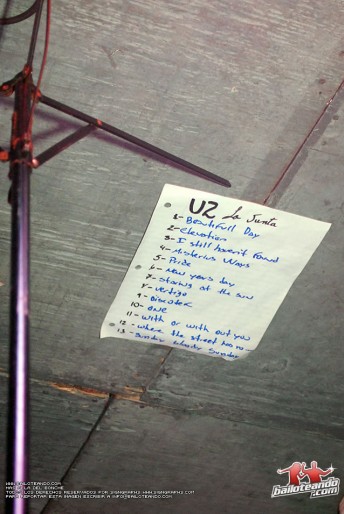 U2 La Junta
1- Beautifull Day
2- Elevation
3- I still haven't Found
4- Misterius Ways
5- Pride
6- New years day
7- Staring at the sun
8- Vertigo
9- Discotek
10- ONE
11- With or with out you
12- where the street has no
13- Sunday bloody Sunday
WWW.BAILOTEANDO.COM
TODOS LOS DERECHOS RESERVADOS POR SIGNGRAPHS WWW.SIGNGRAPHS.COM
PARA REPORTAR ESTA IMAGEN ESCRIBIR A INFO@BAILOTEANDO.COM
bailoteando.com